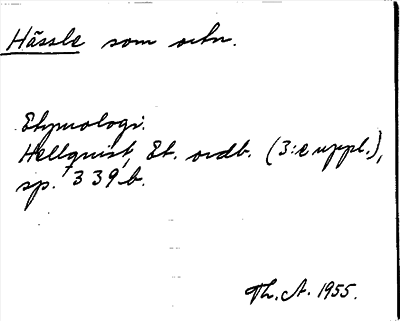 Hässle som ortn.
Etymologi.
Hellquist, Et. ordb. (3:e uppl.),
sp. 339 b.
Th. A. 1955.